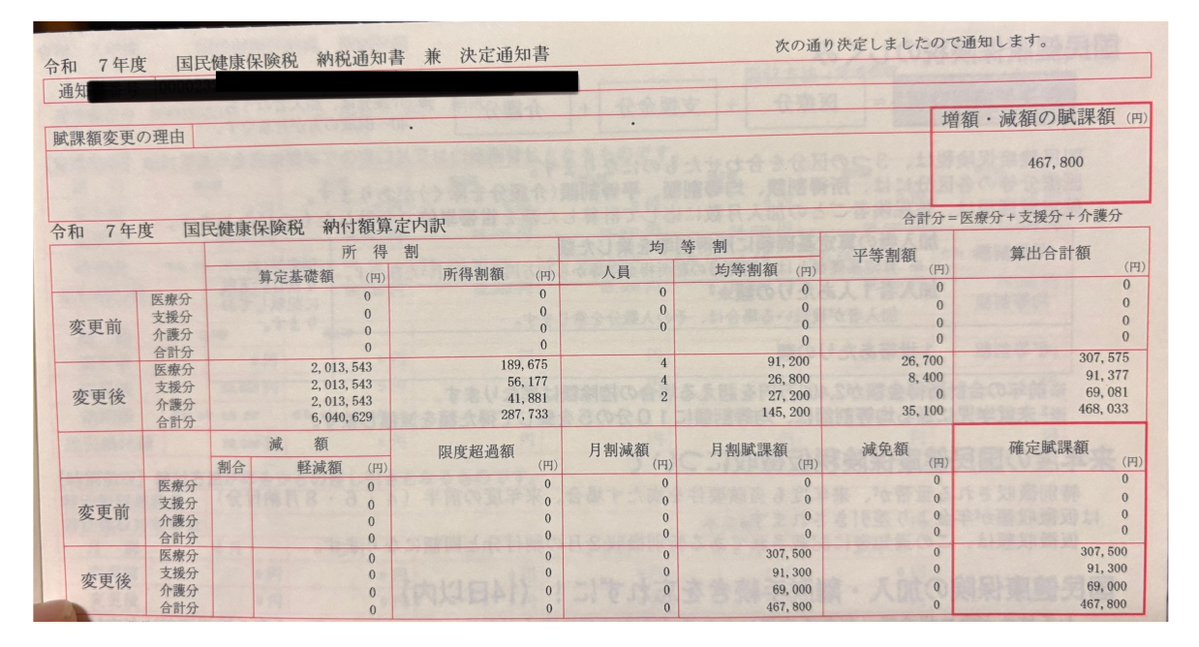 次の通り決定しましたので通知します。
令和 7年度 国民健康保険税 納税通知書 兼 決定通知書
通知
賦課額変更の理由
増額・減額の賦課額 (円)
467,800
令和 7年度 国民健康保険税 納付額算定内訳
合計分=医療分+支援分+介護分
所得割 均等割 平等割額 (円) 算出合計額 (円)
算定基礎額 (円) 所得割額 (円) 人員 均等割額 (円)
変更前
医療分 0 0 0 0 0 0
支援分 0 0 0 0 0 0
介護分 0 0 0 0 0 0
合計分 0 0 0 0 0
変更後
医療分 2,013,543 189,675 4 91,200 26,700 307,575
支援分 2,013,543 56,177 4 26,800 8,400 91,377
介護分 2,013,543 41,881 2 27,200 69,081
合計分 6,040,629 287,733 145,200 35,100 468,033
減額 限度超過額 (円) 月割減額 (円) 月割賦課額 (円) 減免額 (円) 確定賦課額 (円)
割合 軽減額 (円)
変更前
医療分 0 0 0 0 0 0
支援分 0 0 0 0 0 0
介護分 0 0 0 0 0 0
合計分 0 0 0 0 0 0
変更後
医療分 0 0 0 307,500 0 307,500
支援分 0 0 0 91,300 0 91,300
介護分 0 0 0 69,000 0 69,000
合計分 0 0 0 467,800 0 467,800